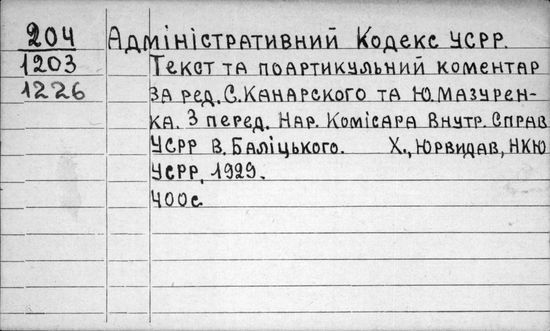 204 Адміністративний Кодекс УСРР.
1203 Текст та поартикульний коментар
1226 за ред. С. Канарского та Ю. Мазурен-
ка. З перед. Нар. Комісара Внутр. Справ
УСРР В. Баліцького. Х., Юрвидав, НКЮ
УСРР, 1929.
400с.